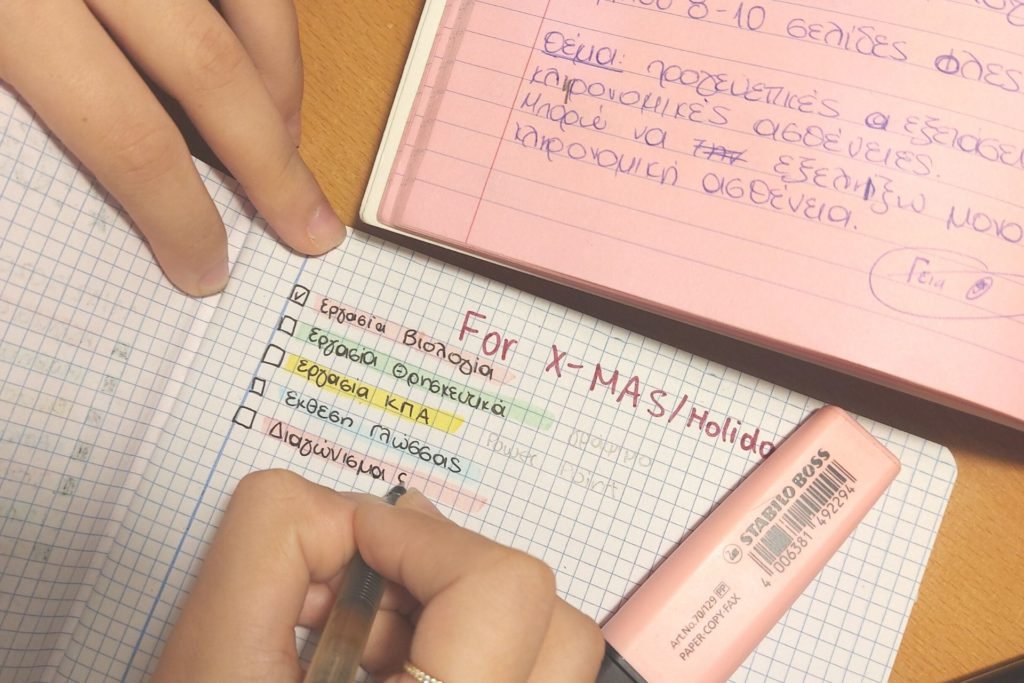 8-10 σελίδες όλες
Θέμα: προγενετικές εξετάσει
κληρονομικές ασθένειες.
Μπορώ να εξεληξω μονο
κληρονομική ασθένεια.
Γεια
For X-MAS/Holida
εργασία Βιολογία
εργασία Θρησκευτικά
εργασια ΚΠΑ
εκθεση Γλωσσας
Διαγώνισμα ς
Power Point
STABILO BOSS
4 006381 492294
Art.No.70/129 PP
PAPER·COPY·FAX